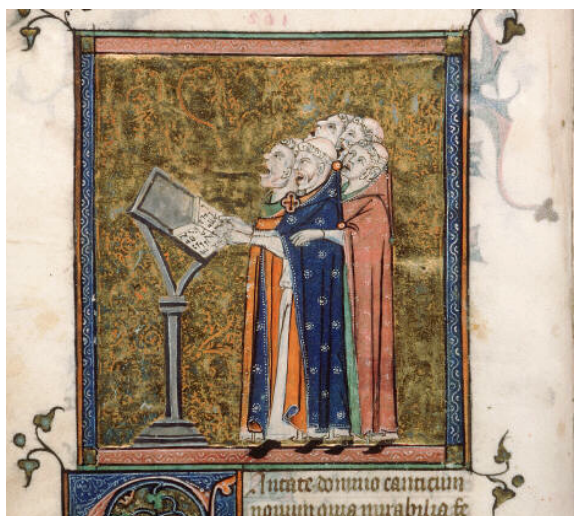 antate domino canticum
nouum quia mirabilia fe